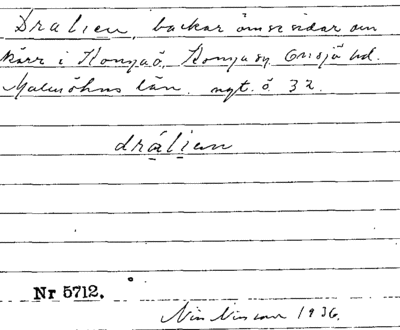 Dralien, backar ömse sidor om
kärr i Konga ö, Konga sn. Onsjö hd.
Malmöhus län. nyt. ö 32.
drálien
Nr 5712.
1936.